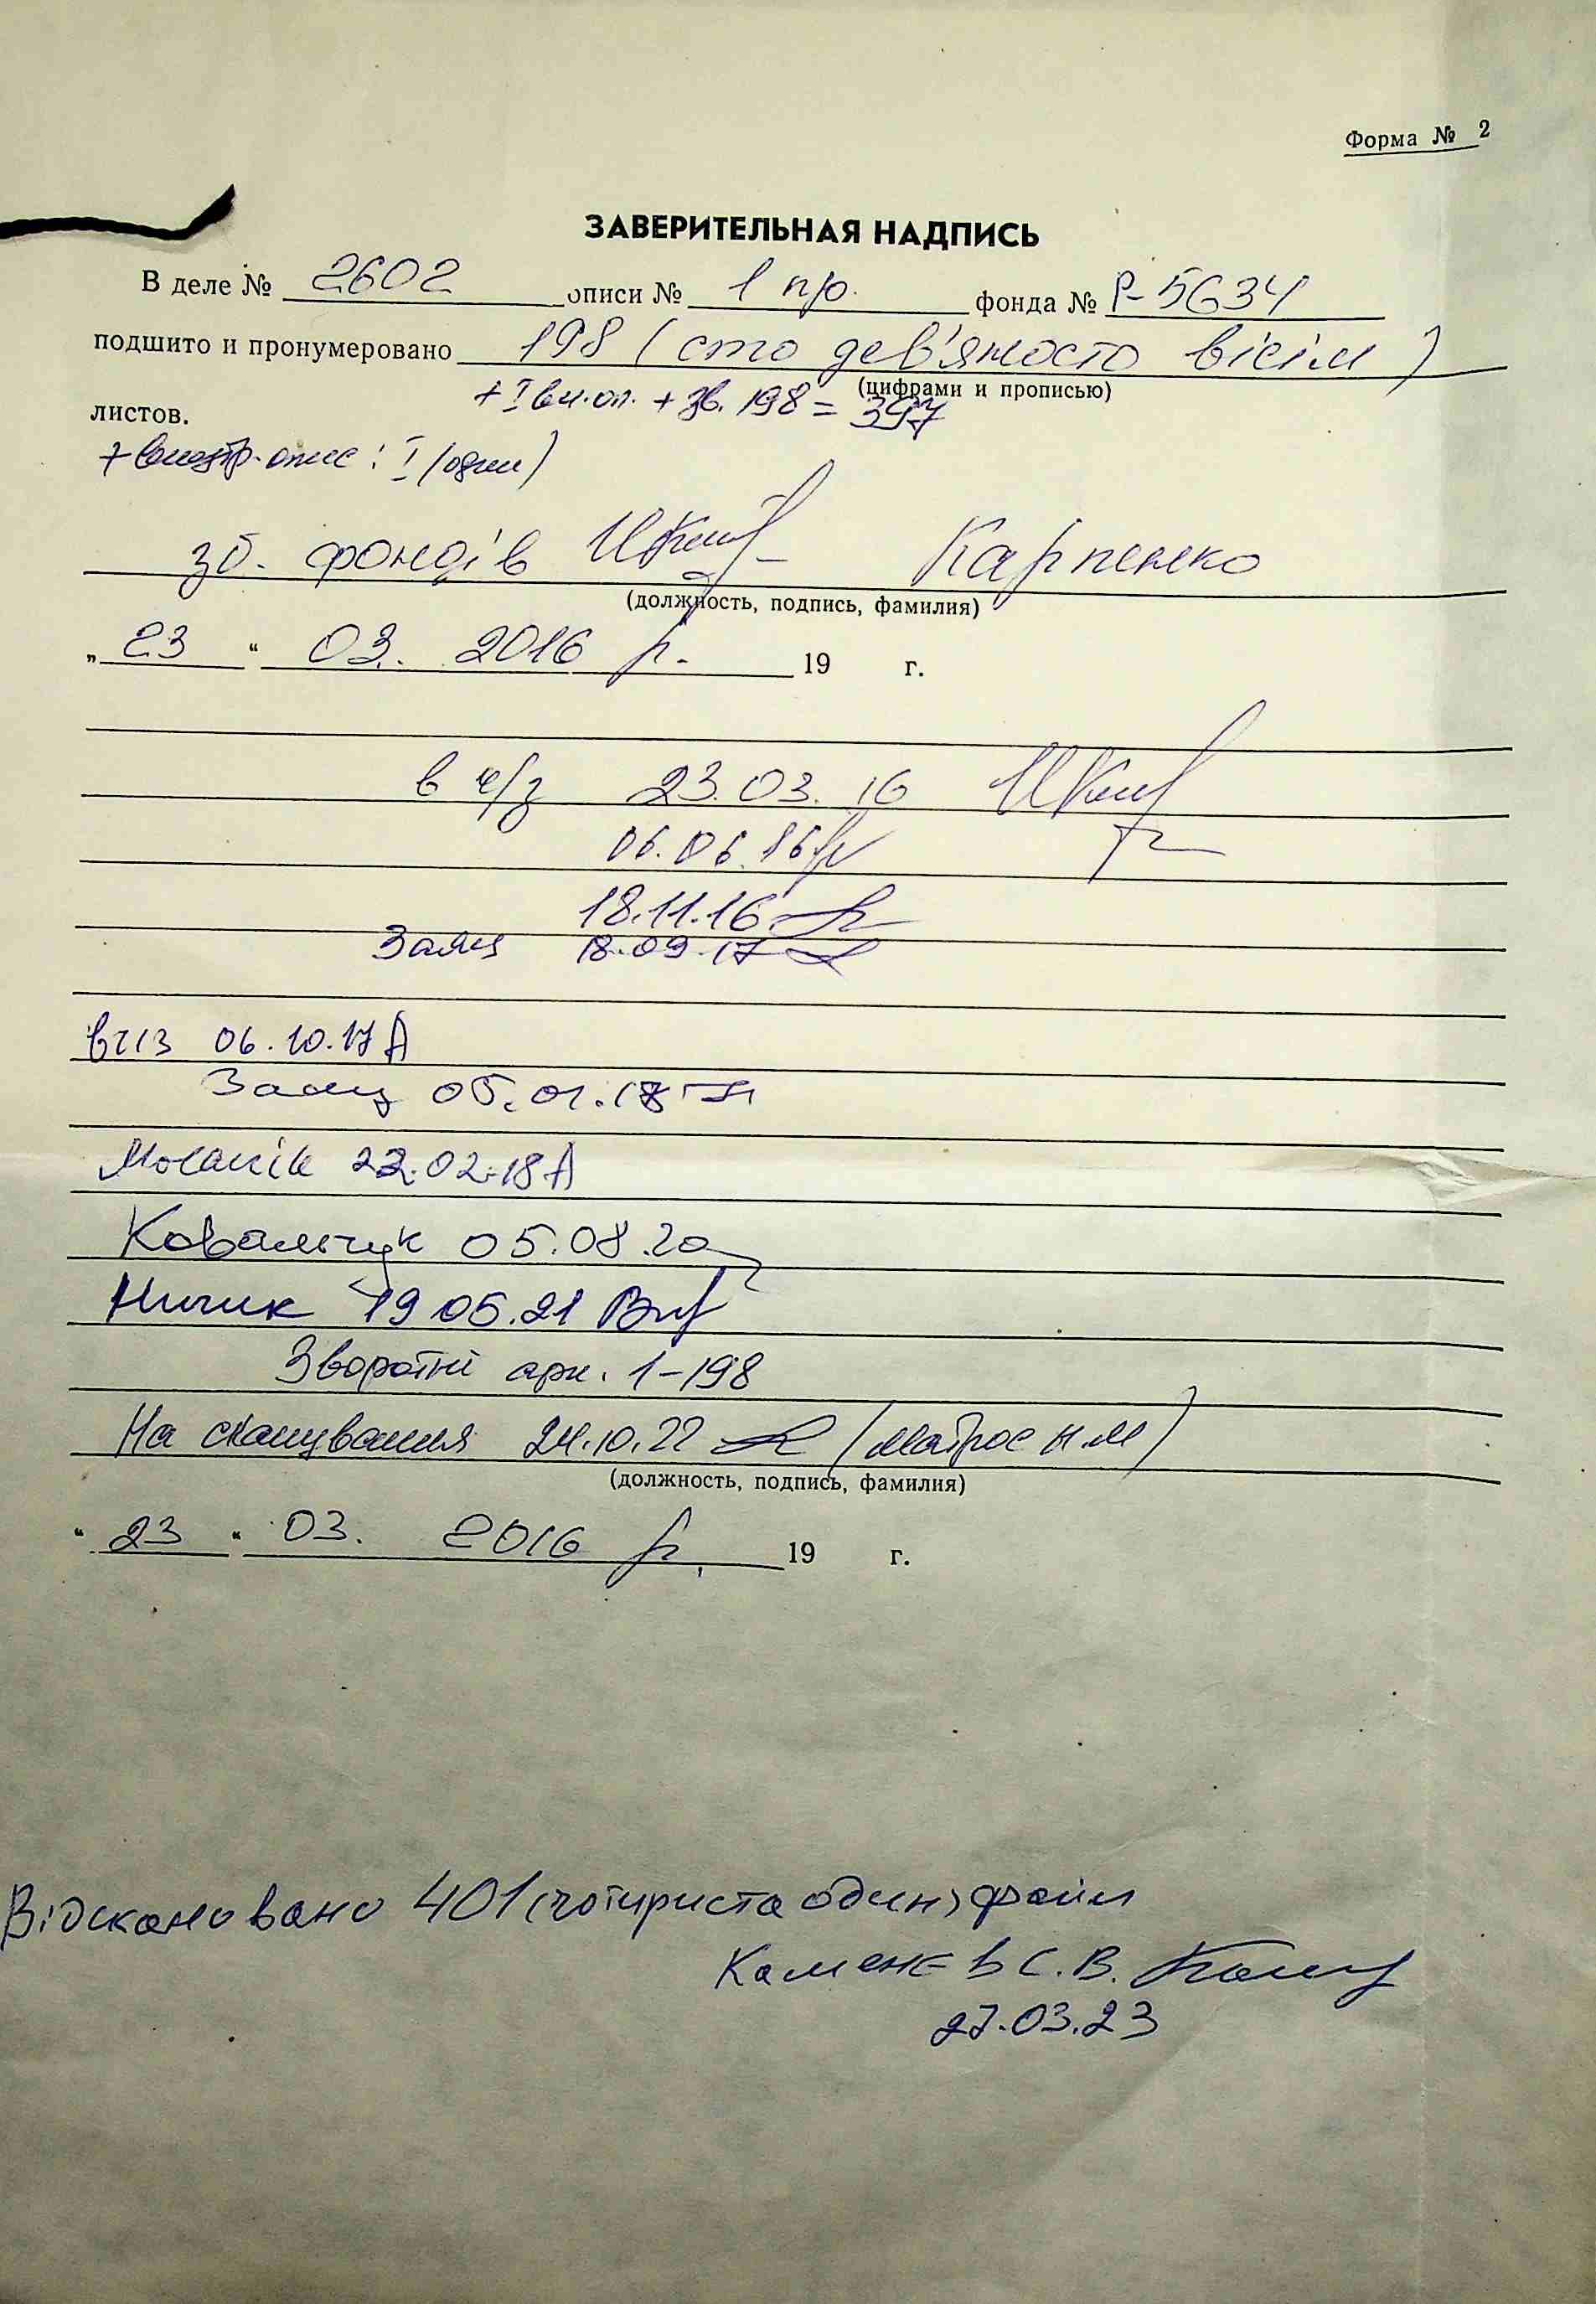 Форма № 2
ЗАВЕРИТЕЛЬНАЯ НАДПИСЬ
В деле № 2602 описи № 1 п/о. фонда № Р-5634
подшито и пронумеровано 198 (сто дев'яносто вісім)
(цифрами и прописью)
листов. + I вн.оп. + зв. 198 = 397
+ внутр. опис: I (один)
зб. фондів Карпенко
(должность, подпись, фамилия)
„ 23 “ 03. 2016 р. 19 г.
в ч/з 23.03.16
06.06.16
18.11.16
Заяц 18.09.17
в ч/з 06.10.17
Заяц 05.01.18
22.02.18
Ковальчук 05.08.20
Ничик 19 05.21
Зворотні арк. 1-198
На сканування 24.10.22 (Матрос Н.М)
(должность, подпись, фамилия)
“ 23 “ 03. 2016 р. 19 г.
Відскановано 401 (чотириста один) файл
Каменєв С.В.
27.03.23